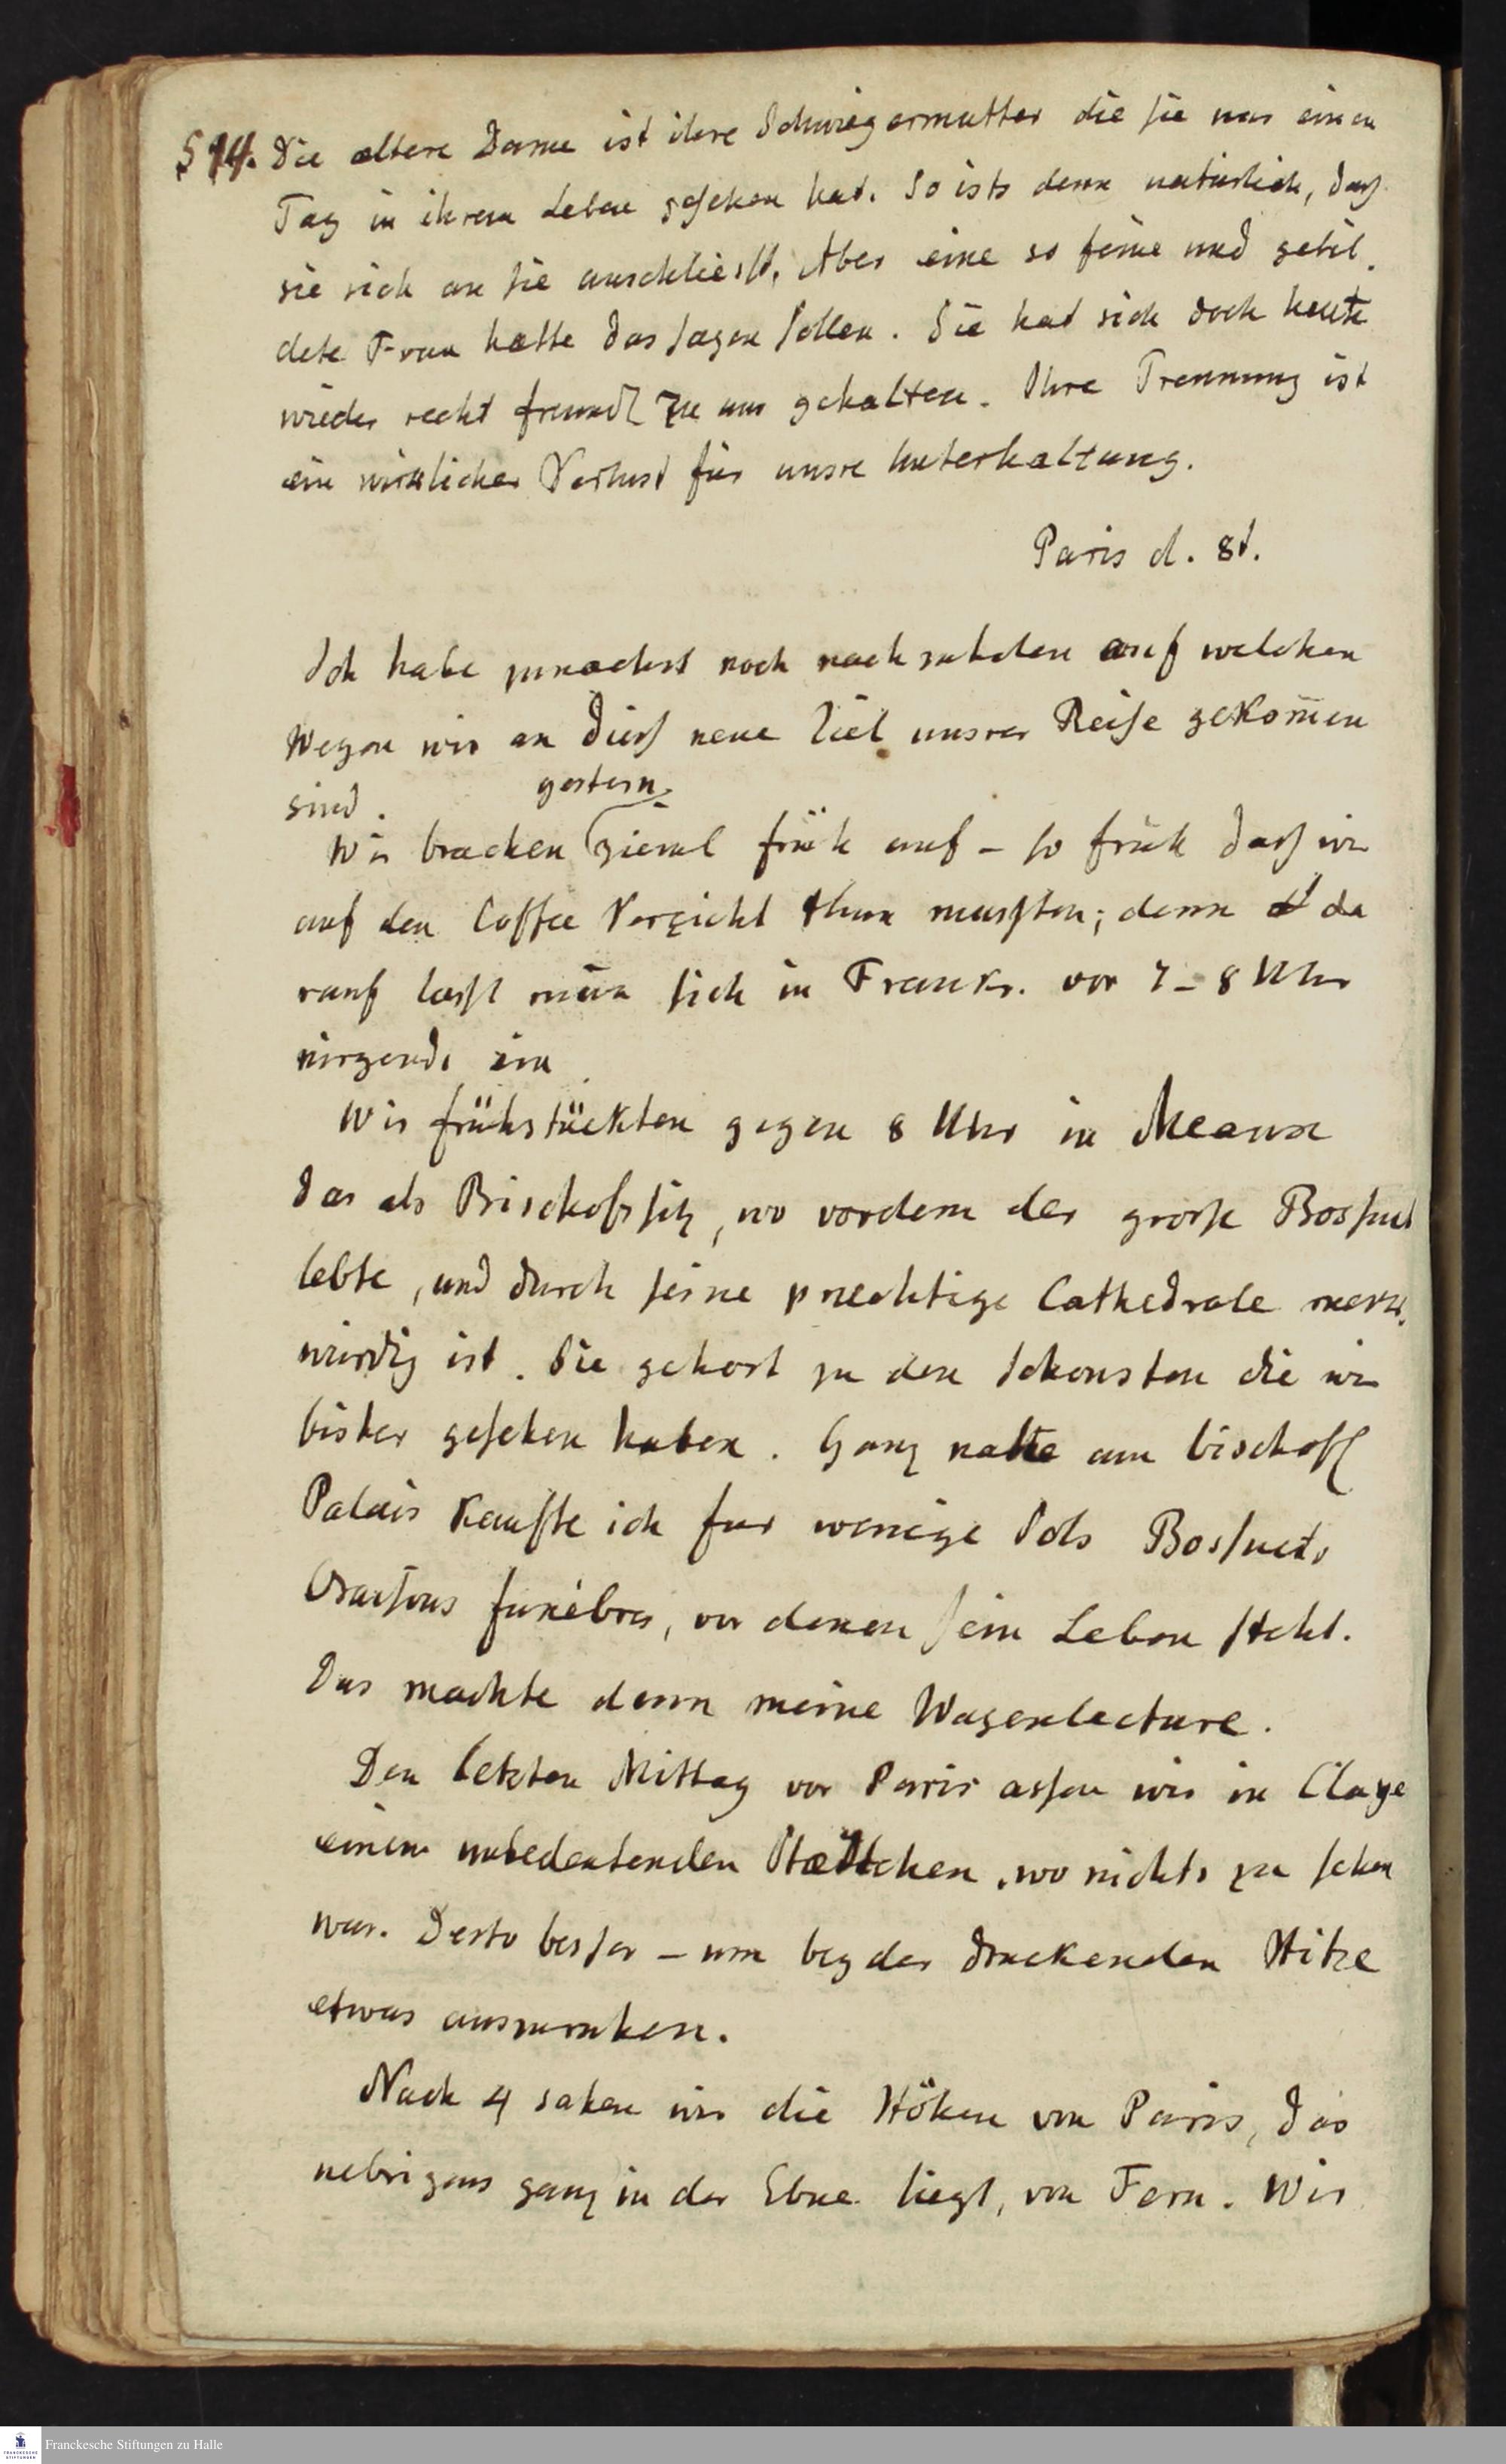 514. Die ältere Dame ist ihre Schwiegermutter die sie nur einen
Tag in ihrem Leben gesehen hat. So ists denn natürlich, daß
sie sich an sie anschliesst. Aber eine so feine und gebil¬
dete Frau hætte das sagen sollen. Sie hat sich doch heute
wieder recht freundl zu uns gehalten. Ihre Trennung ist
ein wirklicher Verlust für unsre Unterhaltung.
Paris d. 8t.
Ich habe zunaechst noch nachzuholen auf welchen
Wegen wir an dieß neue Ziel unsrer Reise gekom̄en
sind.
gestern
Wir brachen zieml früh auf – so früh daß wir
auf den Coffee Verzicht thun mussten; denn da
rauf lasst man sich in Frankr. vor 7–8 Uhr
nirgends ein
Wir frühstückten gegen 8 Uhr in Meaux
das als Bischofssitz, wo vordem der grosse Bossuet
lebte, und durch seine præchtige Cathedrale merk¬
würdig ist. Sie gehört zu den schonsten die wir
bisher gesehen haben. Ganz nahe am bischofl
Palais kaufte ich fur wenige Sols Bossuets
Oraisons funèbres, vor denen sein Leben steht.
Das machte denn meine Wagenlecture.
Den letzten Mittag vor Paris assen wir in Claye
einem unbedeutenden Stædtchen, wo nichts zu sehen
war. Desto besser – um bey der druckenden Hitze
etwas auszuruhen.
Nach 4 sahen wir die Höhen von Paris, das
uebrigens ganz in der Ebne liegt, von Fern. Wir
Franckesche Stiftungen zu Halle
FRANCKESCHE
STIFTUNGEN